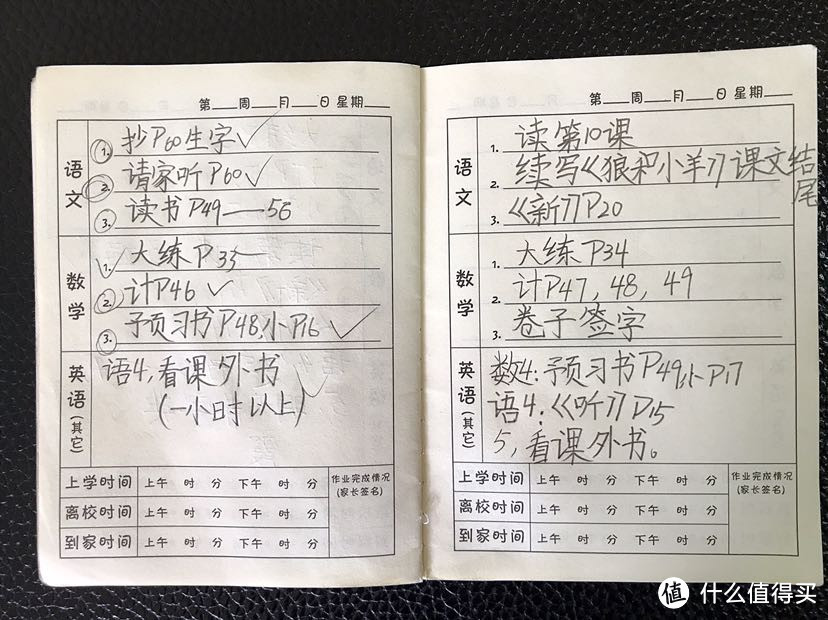 第___周___月___日 星期___
语文
1. 抄P60生字✓
2. 请家听P60✓
3. 读书P49——56
数学
1. 大练P33
2. 计P46✓
3. 予页习书P48,小P16✓
英语(其它)
语4,看课外书
(一小时以上)
上学时间 上午 时 分 下午 时 分
离校时间 上午 时 分 下午 时 分
到家时间 上午 时 分 下午 时 分
作业完成情况
(家长签名)
第___周___月___日 星期___
语文
1. 读第10课
2. 续写《狼和小羊》课文结尾
3. 《新》P20
数学
1. 大练P34
2. 计P47,48,49
3. 卷子签字
英语(其它)
数4:预习书P49,小P17
语4:《听》P15
5,看课外书。
上学时间 上午 时 分 下午 时 分
离校时间 上午 时 分 下午 时 分
到家时间 上午 时 分 下午 时 分
作业完成情况
(家长签名)
值 什么值得买